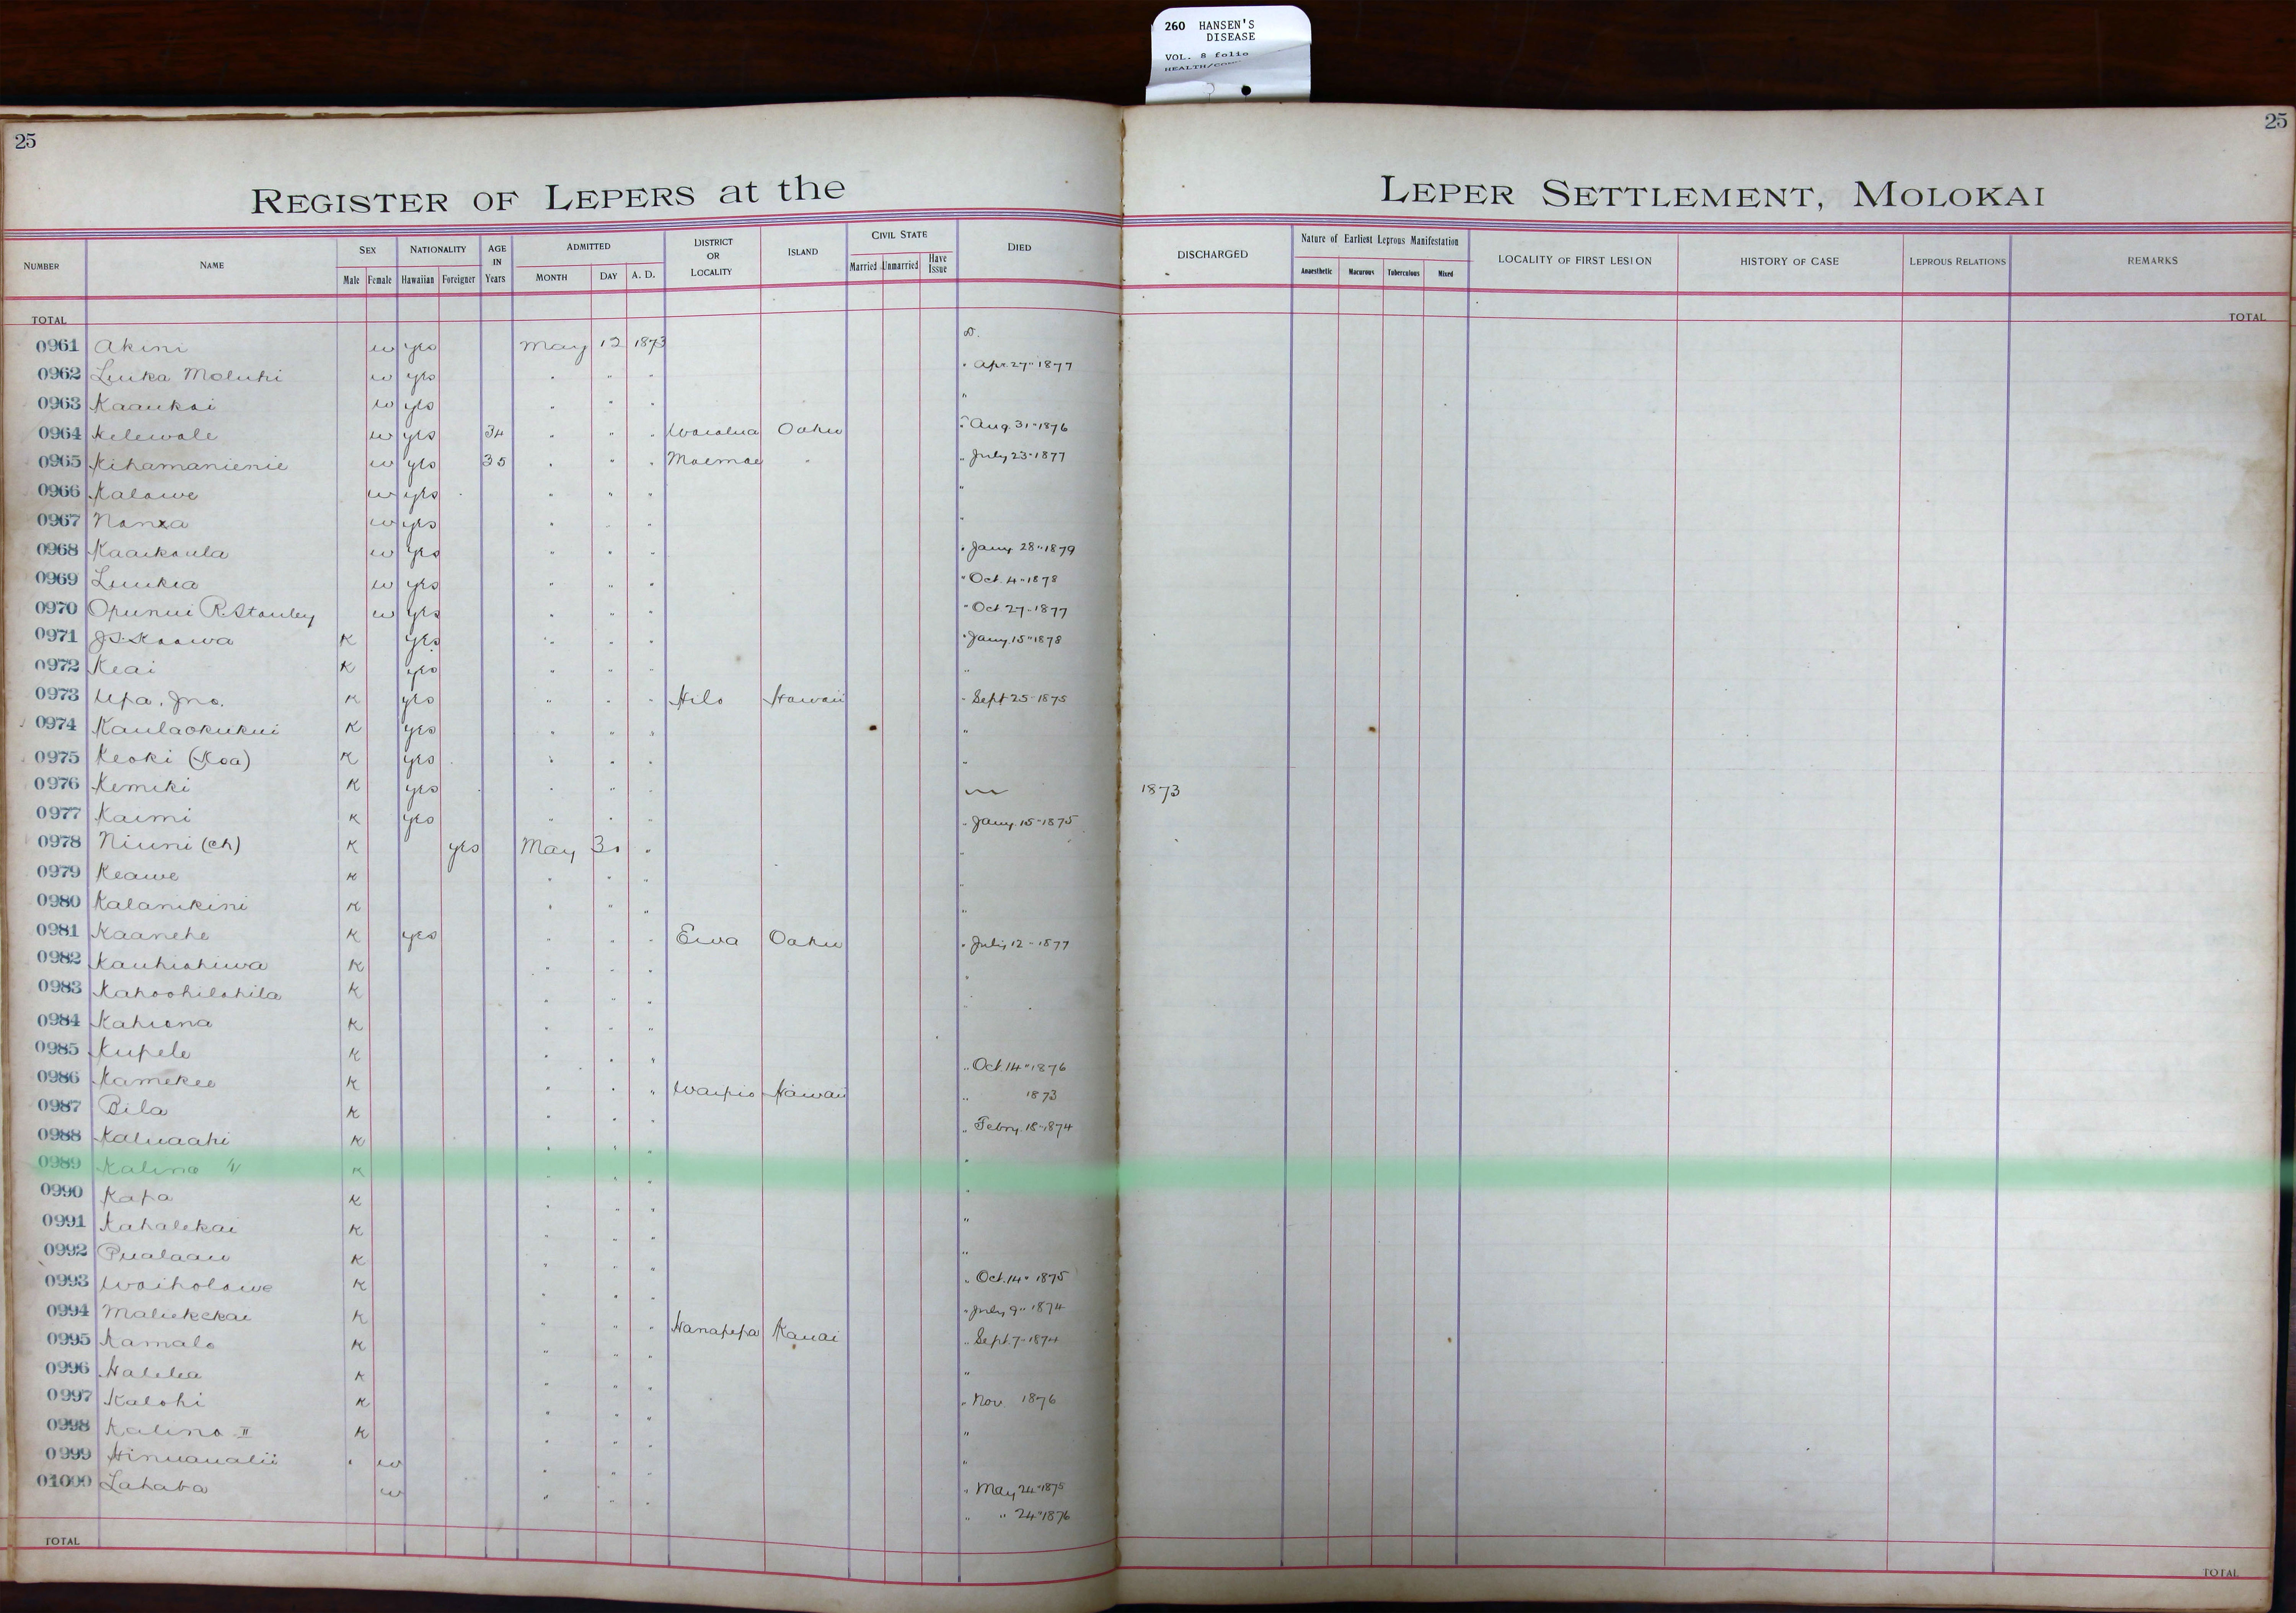 260 HANSEN'S
DISEASE
VOL. 8 folio
25
25
REGISTER OF LEPERS at the LEPER SETTLEMENT, MOLOKAI
NUMBER NAME SEX NATIONALITY AGE IN Years ADMITTED DISTRICT OR LOCALITY ISLAND CIVIL STATE DIED DISCHARGED Nature of Earliest Leprous Manifestation LOCALITY OF FIRST LESION HISTORY OF CASE LEPROUS RELATIONS REMARKS
Male Female Hawaiian Foreigner MONTH DAY A. D. Married Unmarried Have Issue Anaesthetic Macurous Tuberculous Mixed
TOTAL TOTAL
0961 Akini w yes May 12 1873 D.
0962 Luika Moluhi w yes " " " " Apr. 27" 1877
0963 Kaaukai w yes " " " "
0964 Kelewale w yes 34 " " " Waialua Oahu " Aug. 31" 1876
0965 Kihamanienie w yes 35 " " " Moemoe " " July 23" 1877
0966 Kalawe w yes " " " "
0967 w yes " " " "
0968 Kaaikaula w yes " " " " Jany. 28" 1879
0969 Luukia w yes " " " " Oct. 4" 1878
0970 Opunui R. Stanley w yes " " " " Oct 27" 1877
0971 J.S. Kaawa K yes " " " " Jany. 15" 1878
0972 Keai K yes " " " "
0973 Upa. Jno. K yes " " " Hilo Hawaii " Sept 25" 1875
0974 Kaulaokukui K yes " " " "
0975 Keoki (Koa) K yes " " " "
0976 Kemiki K yes " " " 1873
0977 Kaimi K yes " " " " Jany. 15" 1875
0978 Niuni (Ch) K yes May 30 " "
0979 Keawe K " " " "
0980 Kalanikini K " " " "
0981 Kaanehe K yes " " " Ewa Oahu " July 12" 1877
0982 Kauhiohiwa K " " " "
0983 Kahoohilohila K " " " "
0984 Kahiona K " " "
0985 Kupele K " " " " Oct. 14" 1876
0986 Kamekee K " " " Waipio Hawaii " 1873
0987 Bila K " " " " Febry. 18" 1874
0988 Kaluaahi K " " " "
0989 Kalino K " " " "
0990 Kapa K " " " "
0991 Kahalekai K " " " "
0992 Pualaau K " " " " Oct. 14" 1875
0993 Waiholowe K " " " " July 9" 1874
0994 Maliekekai K " " " Hanapepa Kauai " Sept. 7" 1874
0995 Kamalo K " " " "
0996 Halelea K " " " " Nov. 1876
0997 Kalohi K " " " "
0998 Kalino II K " " " "
0999 Hinuaualii w " " " " May 24" 1875
01000 Lahaba w " " " " " 24" 1876
TOTAL TOTAL